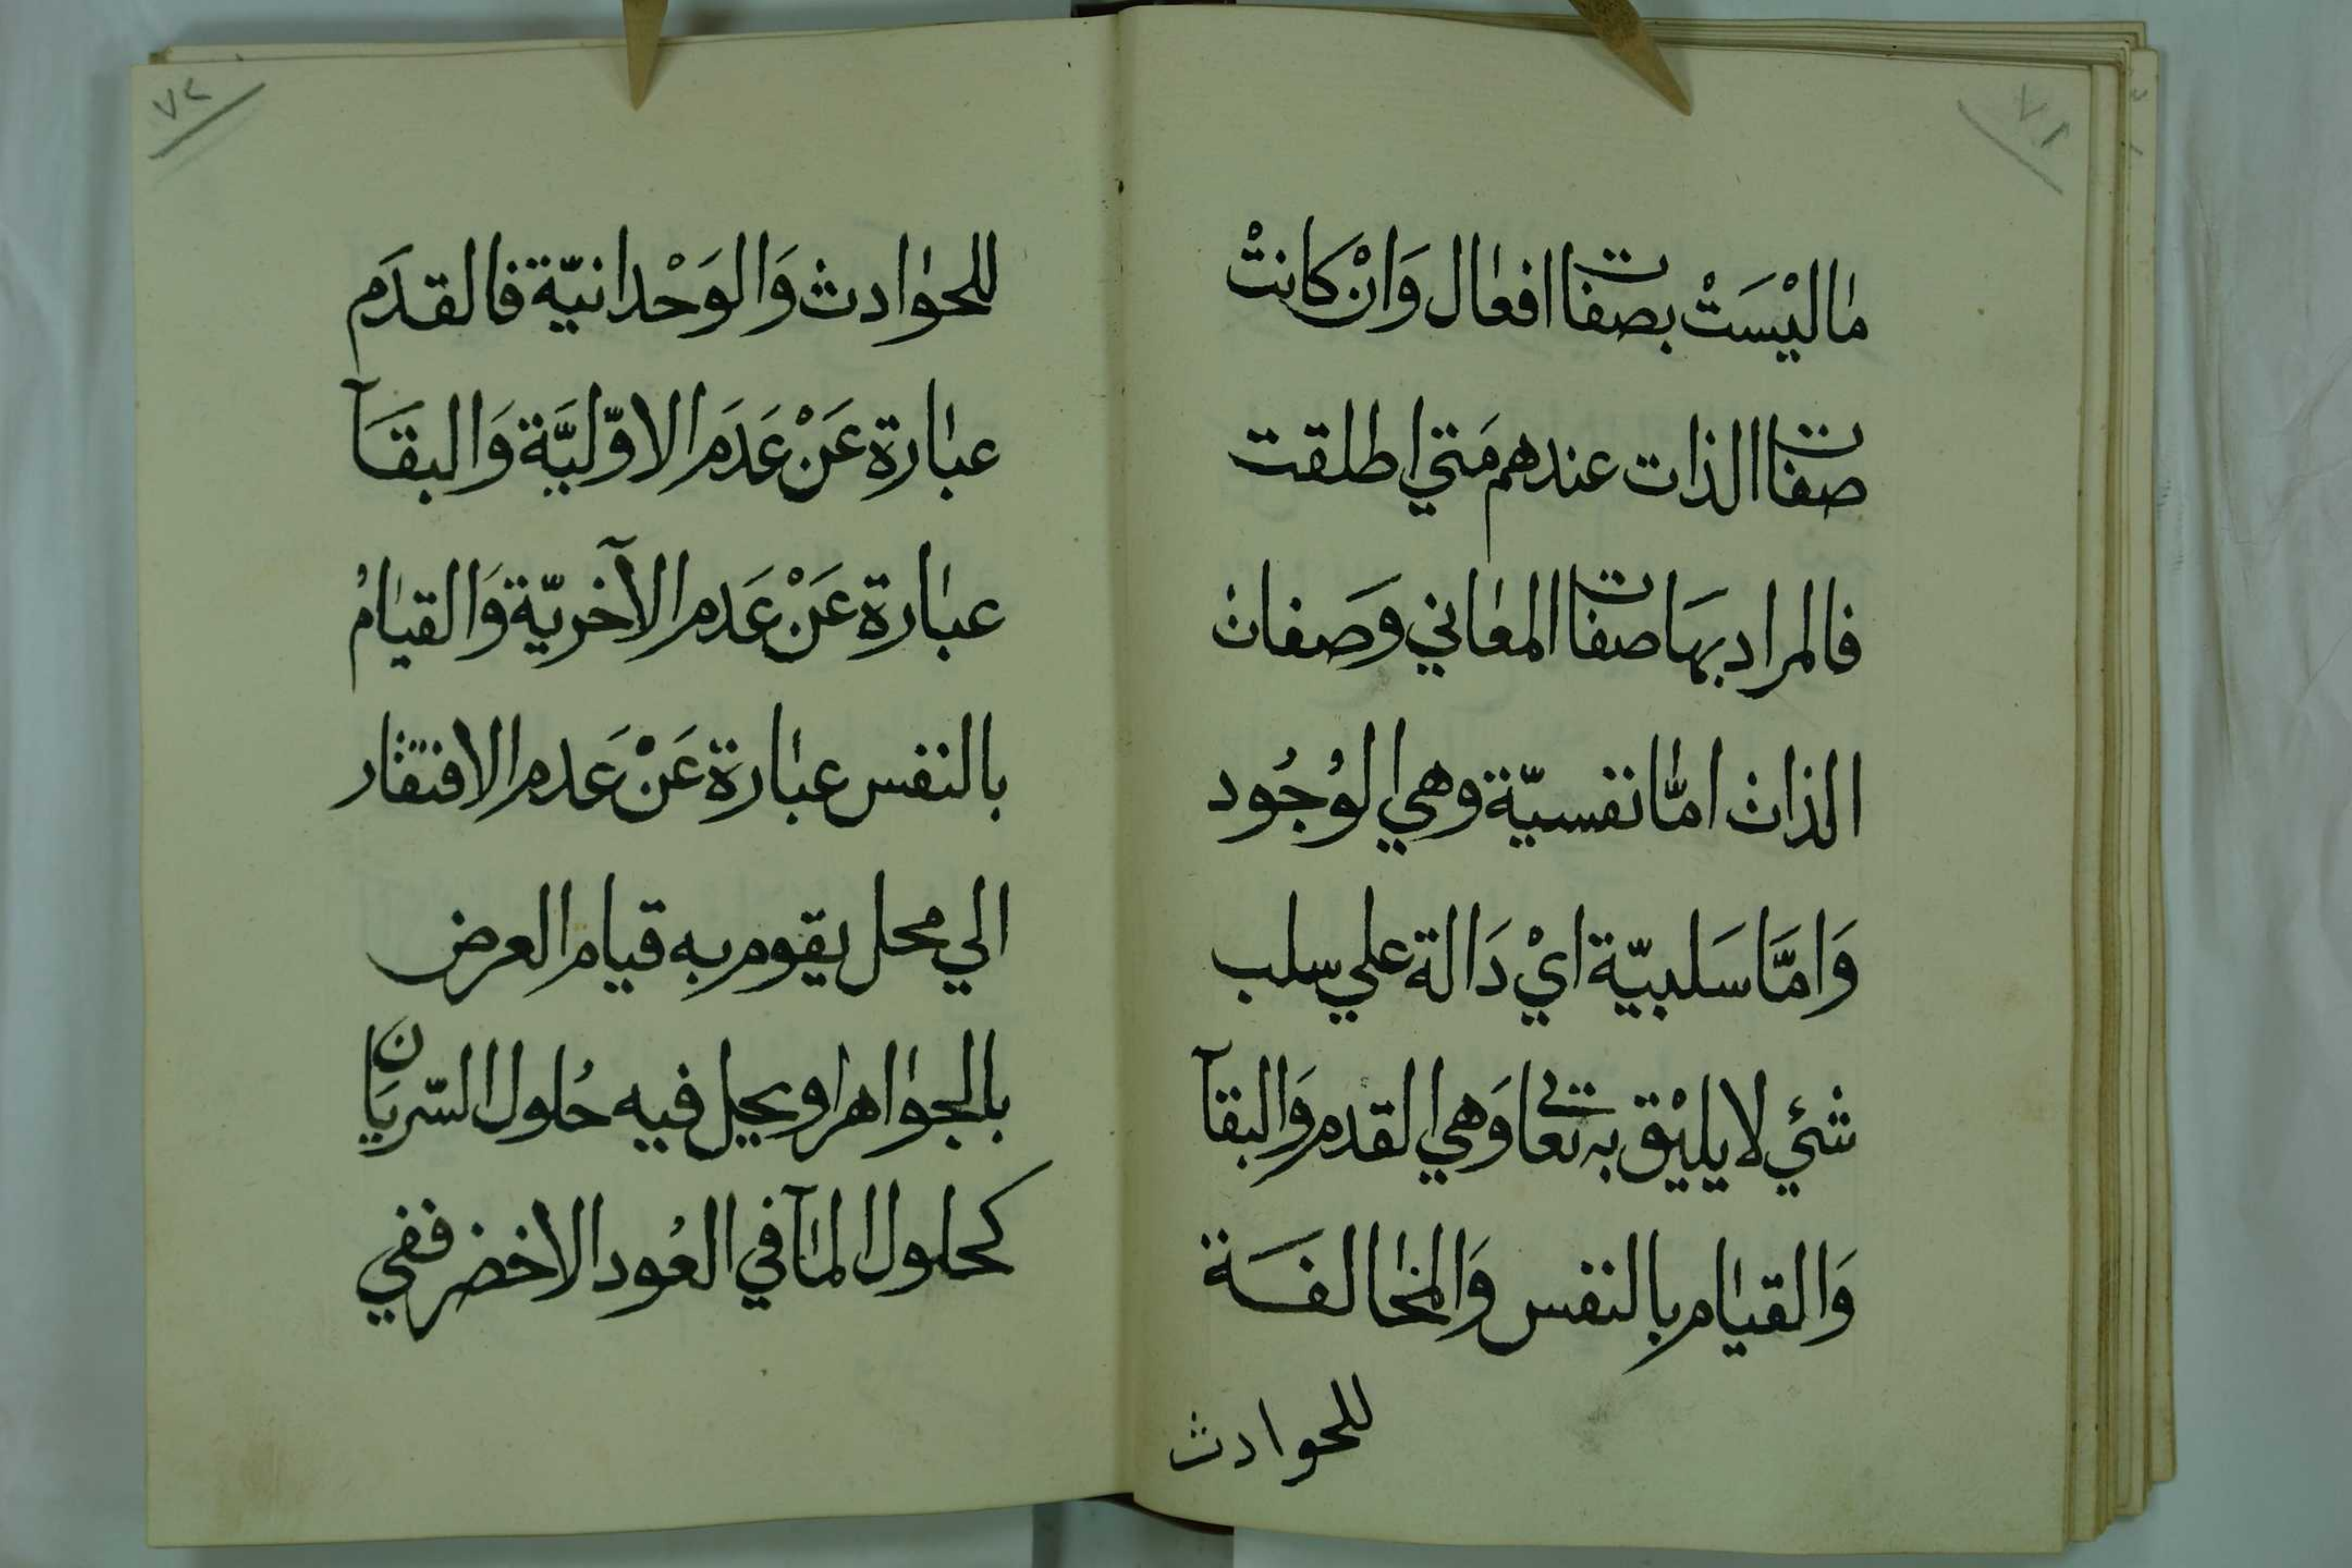 ٧١
مٰا ليْسَتْ بصفات افعٰال وَانْ كانتْ
صفات الذات عندهم مَتي اطلقت
فالمراد بهَا صفات المعٰاني وَصفات
الذات امّٰا نفسيّة وهي الوُجُود
وَامَّا سَلبيّة ايْ دَالة علي سلب
شئي لا يليْق به تعالى وَهي القدم وَالبقآ
وَالقيٰام بالنفس وَالمخٰالفَة
للحوادث
٧٢
للحوٰادث وَالوَحْدانيّة فالقدَم
عبٰارة عَنْ عَدَم الاوّليَّة وَالبقَآ
عبٰارة عَنْ عَدَم الآخريّة وَالقيٰامُ
بالنفس عبٰارة عَنْ عَدم الافتقٰار
الي محل يقوم به قيام العرض
بالجوٰاهر او يحل فيه حُلول السّريَان
كحلول المٰآ في العُود الاخضر ففي